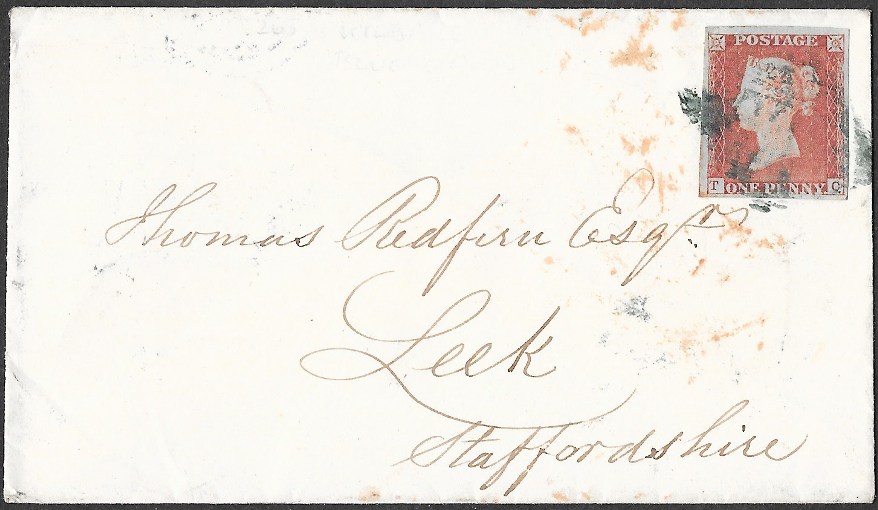 POSTAGE
T ONE PENNY C
Thomas Redfern Esqr
Leek
Staffordshire